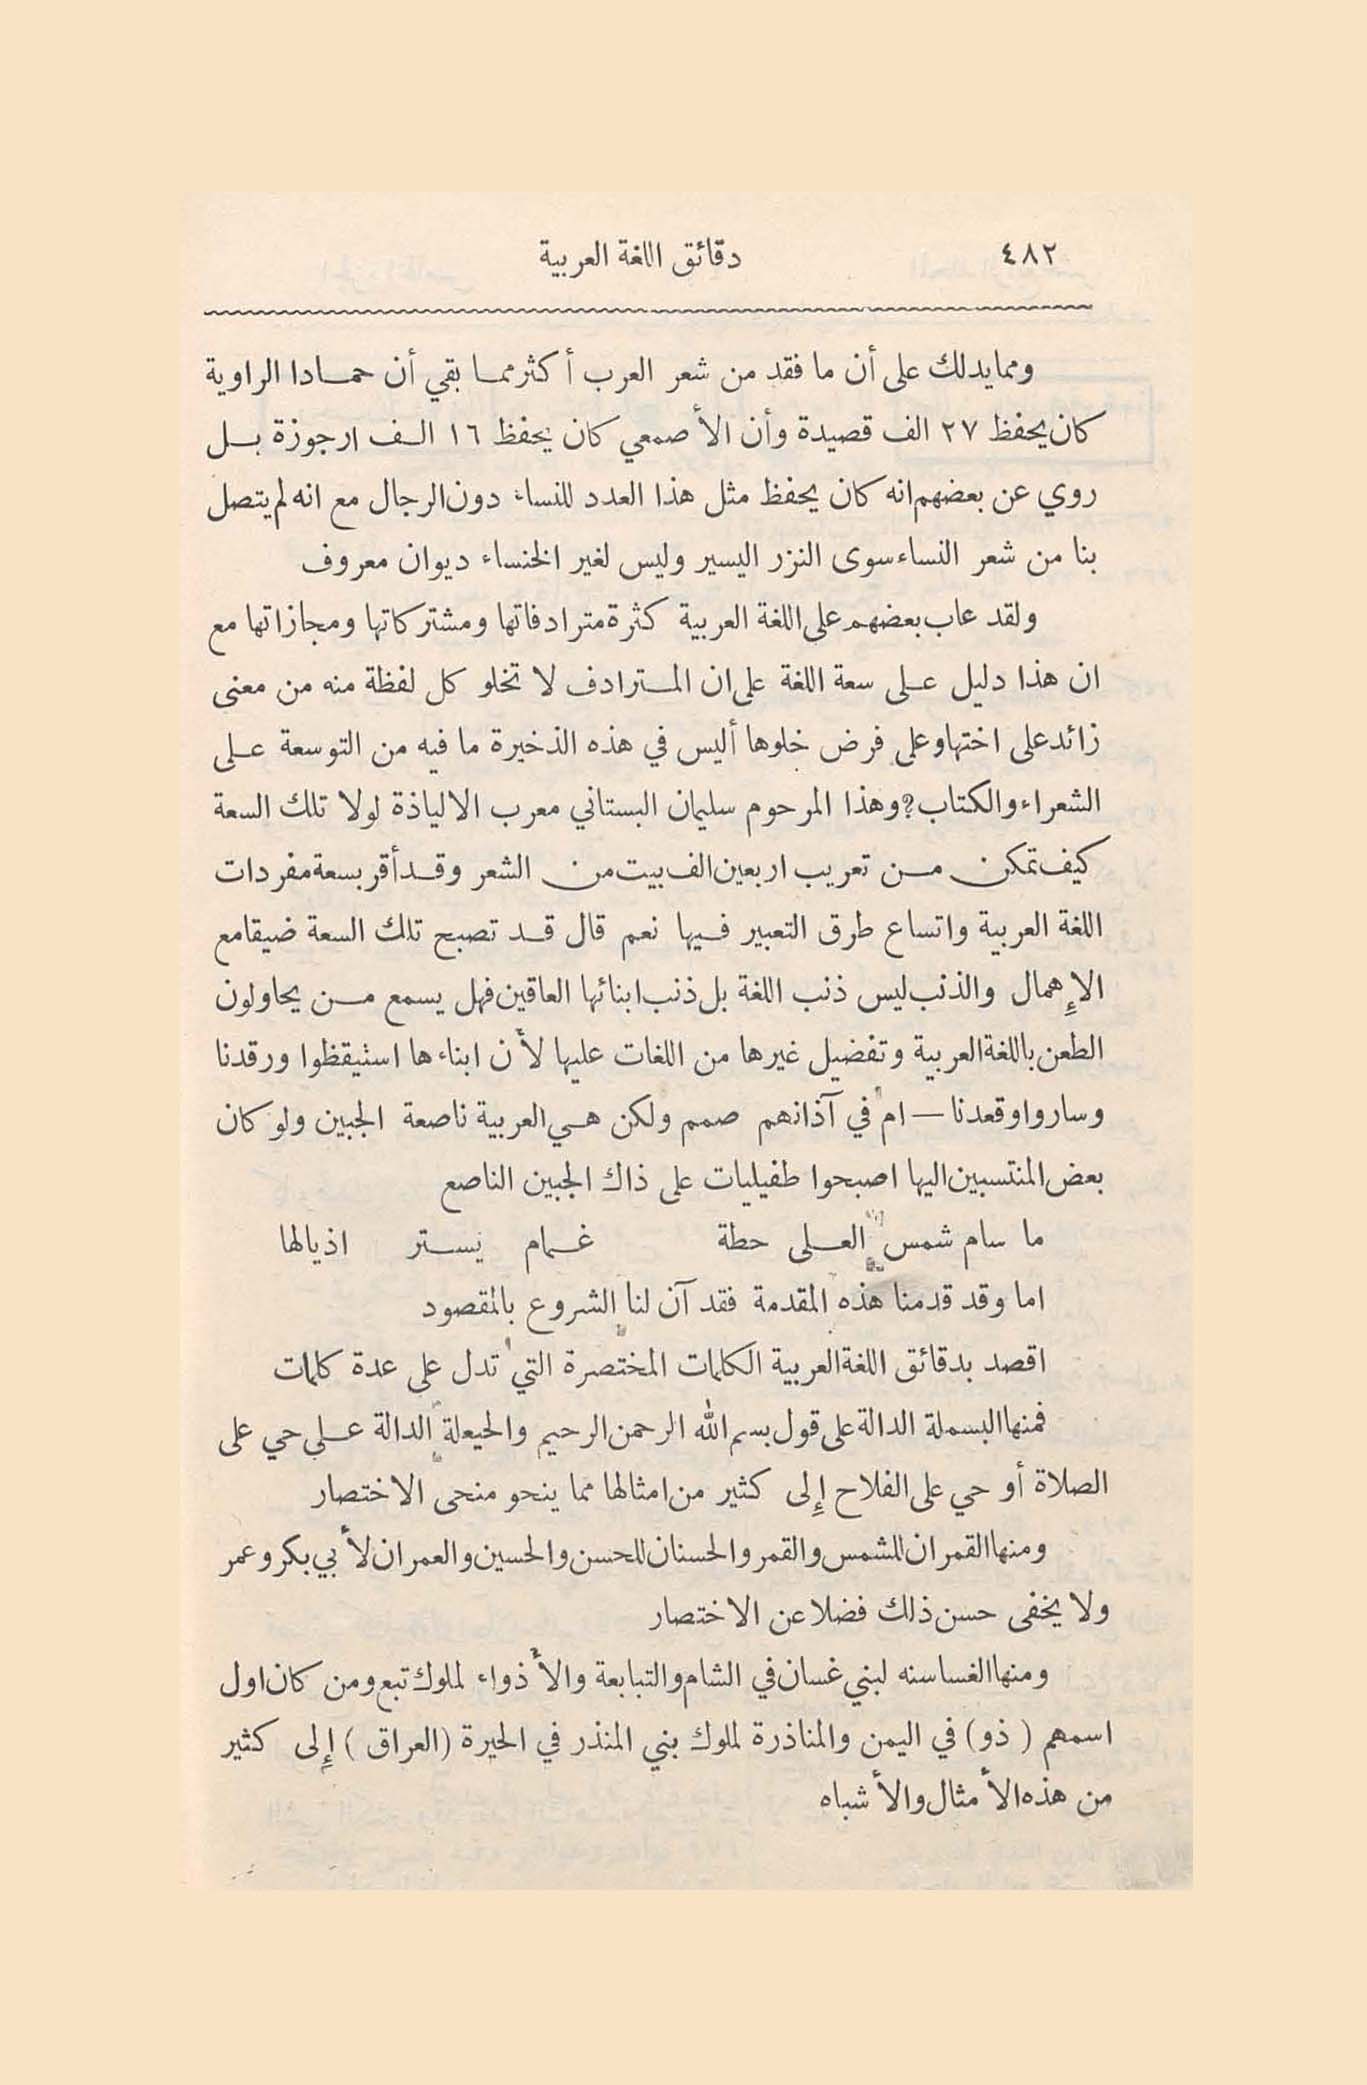 ٤٨٢
دقائق اللغة العربية
ومما يدلك على أن ما فقد من شعر العرب أكثر مما بقي أن حمادا الراوية
كان يحفظ ٢٧ الف قصيدة وأن الأصمعي كان يحفظ ١٦ الف ارجوزة بل
روي عن بعضهم انه كان يحفظ مثل هذا العدد للنساء دون الرجال مع انه لم يتصل
بنا من شعر النساء سوى النزر اليسير وليس لغير الخنساء ديوان معروف
ولقد عاب بعضهم على اللغة العربية كثرة مترادفاتها ومشتركاتها ومجازاتها مع
ان هذا دليل على سعة اللغة على ان المترادف لا تخلو كل لفظة منه من معنى
زائد على اختها وعلى فرض خلوها أليس في هذه الذخيرة ما فيه من التوسعة على
الشعراء والكتاب؟ وهذا المرحوم سليمان البستاني معرب الالياذة لولا تلك السعة
كيف تمكن من تعريب اربعين الف بيت من الشعر وقد أقر بسعة مفردات
اللغة العربية واتساع طرق التعبير فيها نعم قال قد تصبح تلك السعة ضيقا مع
الإهمال والذنب ليس ذنب اللغة بل ذنب ابنائها العاقين فهل يسمع من يحاولون
الطعن باللغة العربية وتفضيل غيرها من اللغات عليها لأن ابناءها استيقظوا ورقدنا
وساروا وقعدنا — ام في آذانهم صمم ولكن هي العربية ناصعة الجبين ولو كان
بعض المنتسبين اليها اصبحوا طفيليات على ذاك الجبين الناصع
ما سام شمس العلى حطة غمام يستر اذيالها
اما وقد قدمنا هذه المقدمة فقد آن لنا الشروع بالمقصود
اقصد بدقائق اللغة العربية الكلمات المختصرة التي تدل على عدة كلمات
فمنها البسملة الدالة على قول بسم الله الرحمن الرحيم والحيعلة الدالة على حي على
الصلاة أو حي على الفلاح إلى كثير من امثالها مما ينحو منحى الاختصار
ومنها القمران للشمس والقمر والحسنان للحسن والحسين والعمران لأبي بكر وعمر
ولا يخفى حسن ذلك فضلا عن الاختصار
ومنها الغساسنه لبني غسان في الشام والتبابعة والأذواء لملوك تبع ومن كان اول
اسمهم ( ذو ) في اليمن والمناذرة لملوك بني المنذر في الحيرة ( العراق ) إلى كثير
من هذه الأمثال والأشباه